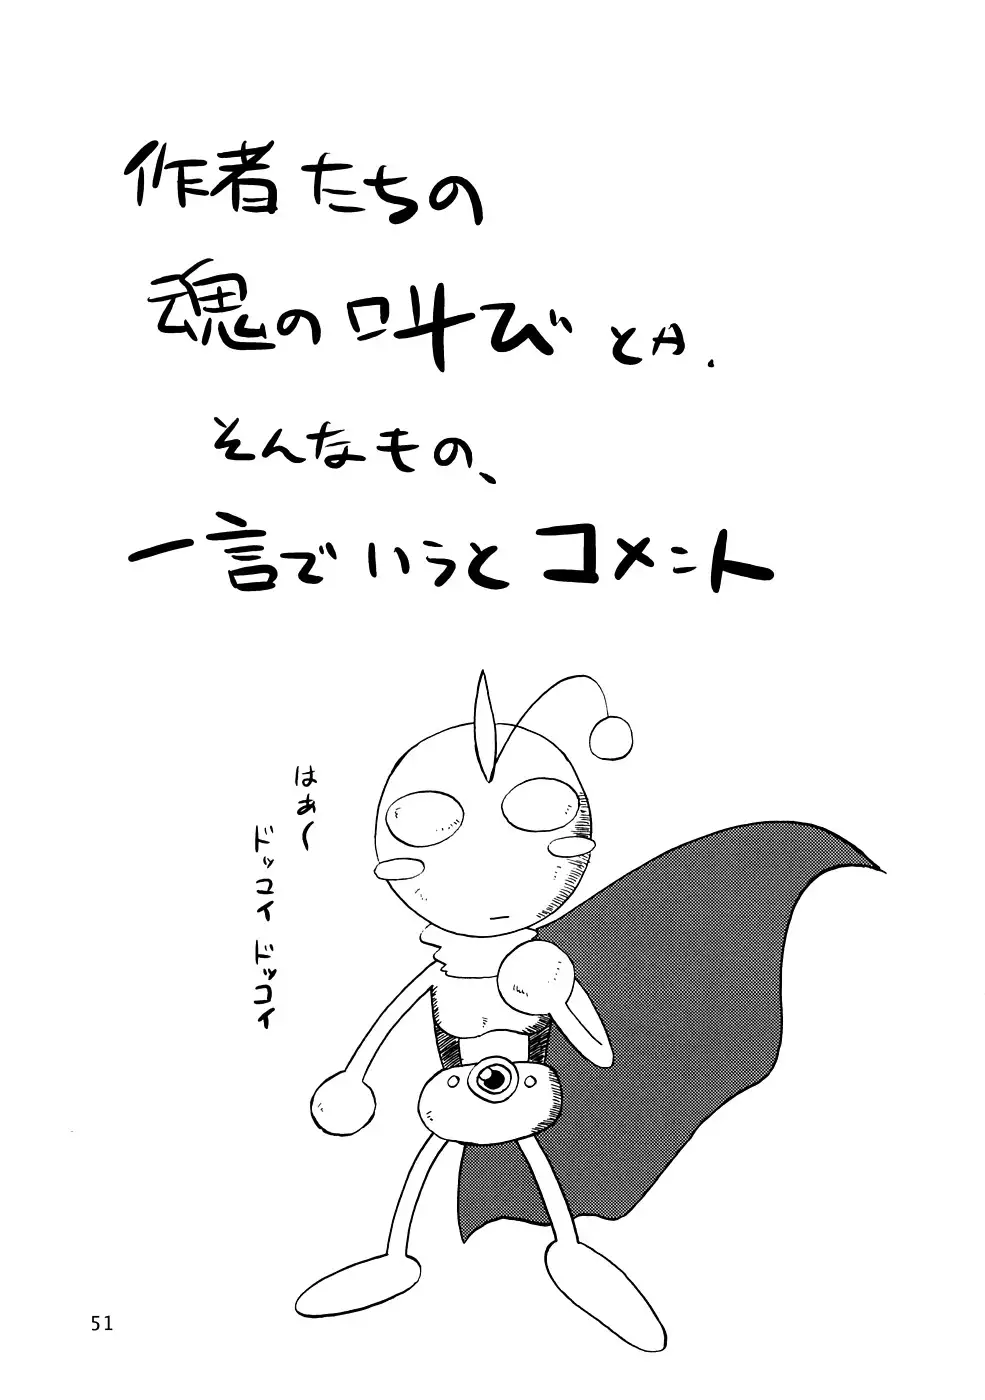 作者たちの
魂の叫びとか.
そんなもの、
一言でいうとコメント
はぁ〜
ドッコイドッコイ
51